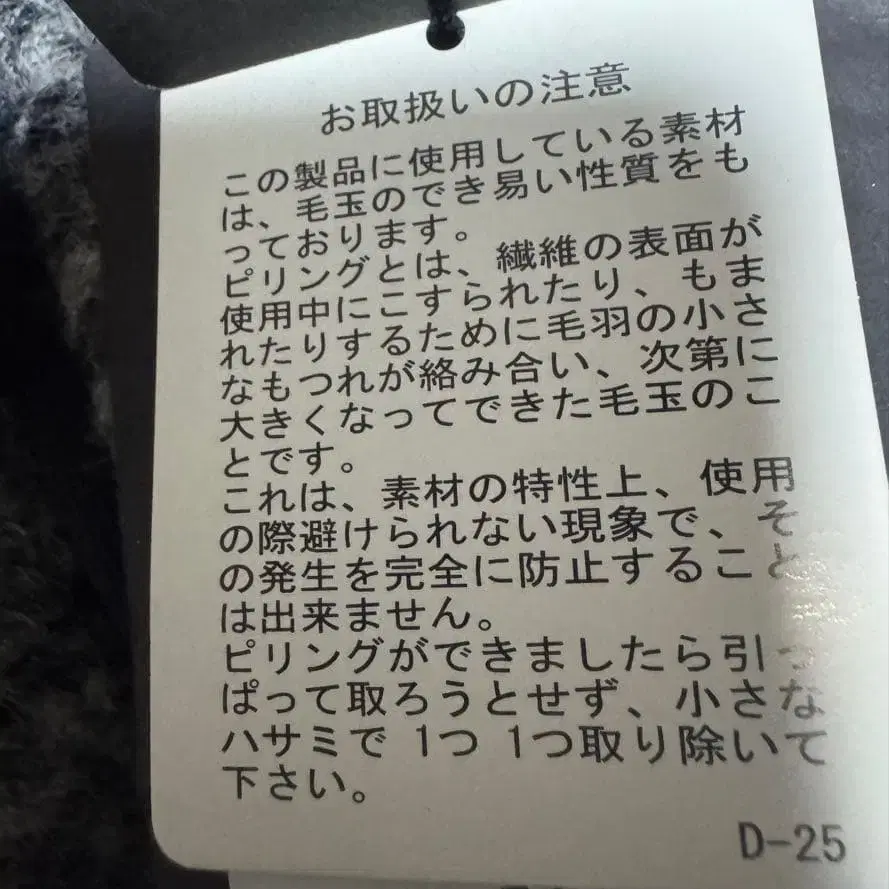 お取扱いの注意
この製品に使用している素材
は、毛玉のでき易い性質をも
っております。
ピリングとは、繊維の表面が
使用中にこすられたり、もま
れたりするために毛羽の小さ
なもつれが絡み合い、次第に
大きくなってできた毛玉のこ
とです。
これは、素材の特性上、使用
の際避けられない現象で、そ
の発生を完全に防止すること
は出来ません。
ピリングができましたら引っ
ぱって取ろうとせず、小さな
ハサミで1つ1つ取り除いて
下さい。
D-25